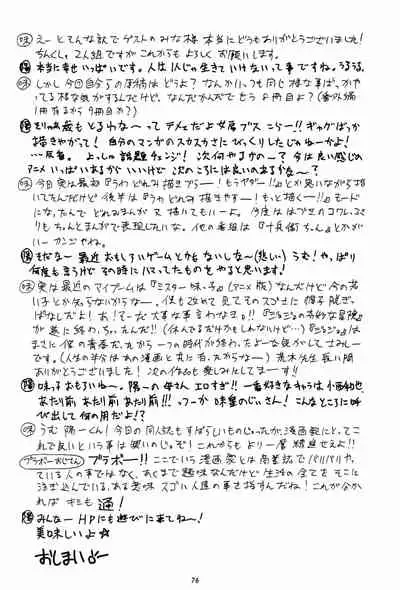 ㋱ えーとそんな訳でゲストのみな様本当にどうもありがとうございました!
ちんくしゃ2人組ですがこれからもよろしくお願いします。
本当に幸せいっぱいです。人は1人じゃ生きていけないって事ですね。うるうる。
しかし今回自分らの原稿はどうよ?なんかいっつも同じ様な事ばっかやってる様な気がするんだけど、なんだかんだでもう8冊目よ?(番外編
1冊あるから9冊目か?)
ギャグばっか
描きやがって!自分のマンガのスカスカさにびっくりしたじゃねーかよ!
…反省。よっしゃ話題チェンジ!次何やますのー?今は良い感じの
アニメいっぱいあるからいいけど次のころには良いのあるかなー?
今回実は最初「うわどれみ描きづらー!もうヤダー!!」とか思いながら描い
てたんだけど後半は「うわどれみ描きやすー!もっと描くー!!」モード
になったんでどれみまんが又描いてもいーよ。今度は
りもちゃんとまんがで表現したいな。他の番組は「十兵衛ちゃん」とかが
いー カンジやね。
そだなー最近おもしろいゲームとかもないしなー(悲しい)うむ!やっぱり
何度も言うけどその時にハマってたものをやると思います!
実は最近のマイブームは「ミスター味っ子」(アニメ版)なんだけど今の若
い子とか知らないからなー。俺も改めて見てそのスゴさに帽子脱ぎっ
ぱなしだよ!あ!あー!大事な事言わなきゃ!!「ジョジョの奇妙な冒険」
が遂に終わっちったんだ!!(休んでるだけかもしれないけど…)「ジョジョ」は
まさに俺の青春だったから一つの時代が終わったよーな気がしてさみしー
です。(人生の半分はあの漫画と共に有ったからなー)荒木先生長い間
ありがとうございました!次の作品も楽しみにしてまーす!!
味っ子おもろいねー。陽一の母さんエロすぎ!!一番好きなキャラは小西和也
あたり前あたり前あたり前!!!っつーか味皇のじいさん!こんなところに呼
び出して何の用だよ!?
うむ陽一くん!今日の同人誌もすばらしいものじゃったが漫画家にとってこ
れで良いという事は無いのじゃぞ!これからもより一層精進せえよ!!
ブラボーおじさん ブラボー!!ここでいう漫画家とは商業誌でバリバリやっ
ている人の事ではなく、あくまで趣味なんだけど生活の全てをそこに
注ぎ込んでいる、ある意味スゴい人達の事を指すんだね!これが分か
ればキミも通!
みんなーHPにも遊びに来てねー!
美味しいよ☆
おしまいよー
76